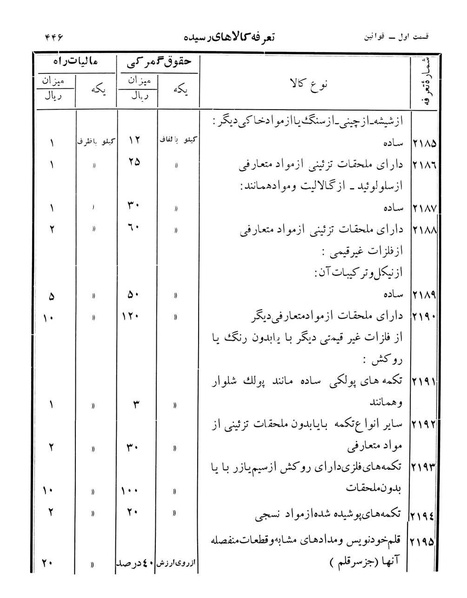 قسمت اول ـ قوانین تعرفه کالاهای رسیده ۴۴۶
شمارهٔ تعرفه نوع کالا حقوق گمرکی مالیات راه
یکه میزان ریال یکه میزان ریال
از شیشه ـ از چینی ـ از سنگ یا از مواد خاکی دیگر :
۲۱۸۵ ساده کیلو بالفاف ۱۲ کیلو باظرف ۱
۲۱۸۶ دارای ملحقات تزئینی از مواد متعارفی » ۲۵ » ۱
از سلولوئید ـ از گالالیت و مواد همانند :
۲۱۸۷ ساده » ۳۰ » ۱
۲۱۸۸ دارای ملحقات تزئینی از مواد متعارفی » ۶۰ » ۲
از فلزات غیر قیمی :
از نیکل و ترکیبات آن :
۲۱۸۹ ساده » ۵۰ » ۵
۲۱۹۰ دارای ملحقات از مواد متعارفی دیگر » ۱۲۰ » ۱۰
از فلزات غیر قیمتی دیگر با یا بدون رنگ یا
روکش :
۲۱۹۱ تکمه های پولکی ساده مانند پولك شلوار
وهمانند » ۳ » ۱
۲۱۹۲ سایر انواع تکمه با یا بدون ملحقات تزئینی از
مواد متعارفی » ۳۰ » ۲
۲۱۹۳ تکمه‌های فلزی دارای روکش از سیم یا زر با یا
بدون ملحقات » ۱۰۰ » ۱۰
۲۱۹٤ تکمه‌های پوشیده شده از مواد نسجی » ۲۰ » ۲
۲۱۹۵ قلم خودنویس و مدادهای مشابه و قطعات منفصله
آنها (جز سر قلم ) از روی ارزش ٤۰ درصد » ۲۰